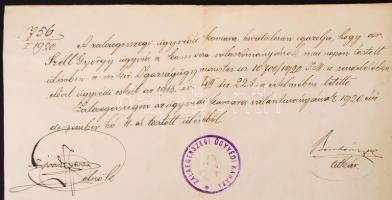 756.
1920.
A zalaegerszegi ügyvédi kamara hivatalosan igazolja, hogy dr.
Széll György ügyvéd a kamara választmányának mai napon tartott
ülésében a m. kir. Igazságügyminister úr 10.700/1920 I. M. sz. rendeletében
előírt ügyvédi esküt az 1913. évi §-a értelmében letette.
Zalaegerszegen az ügyvédi kamara választmányának 1920 évi
deczember hó tartott üléséből.
elnök
titkár.
ZALAEGERSZEGI ÜGYVÉDI KAMARA